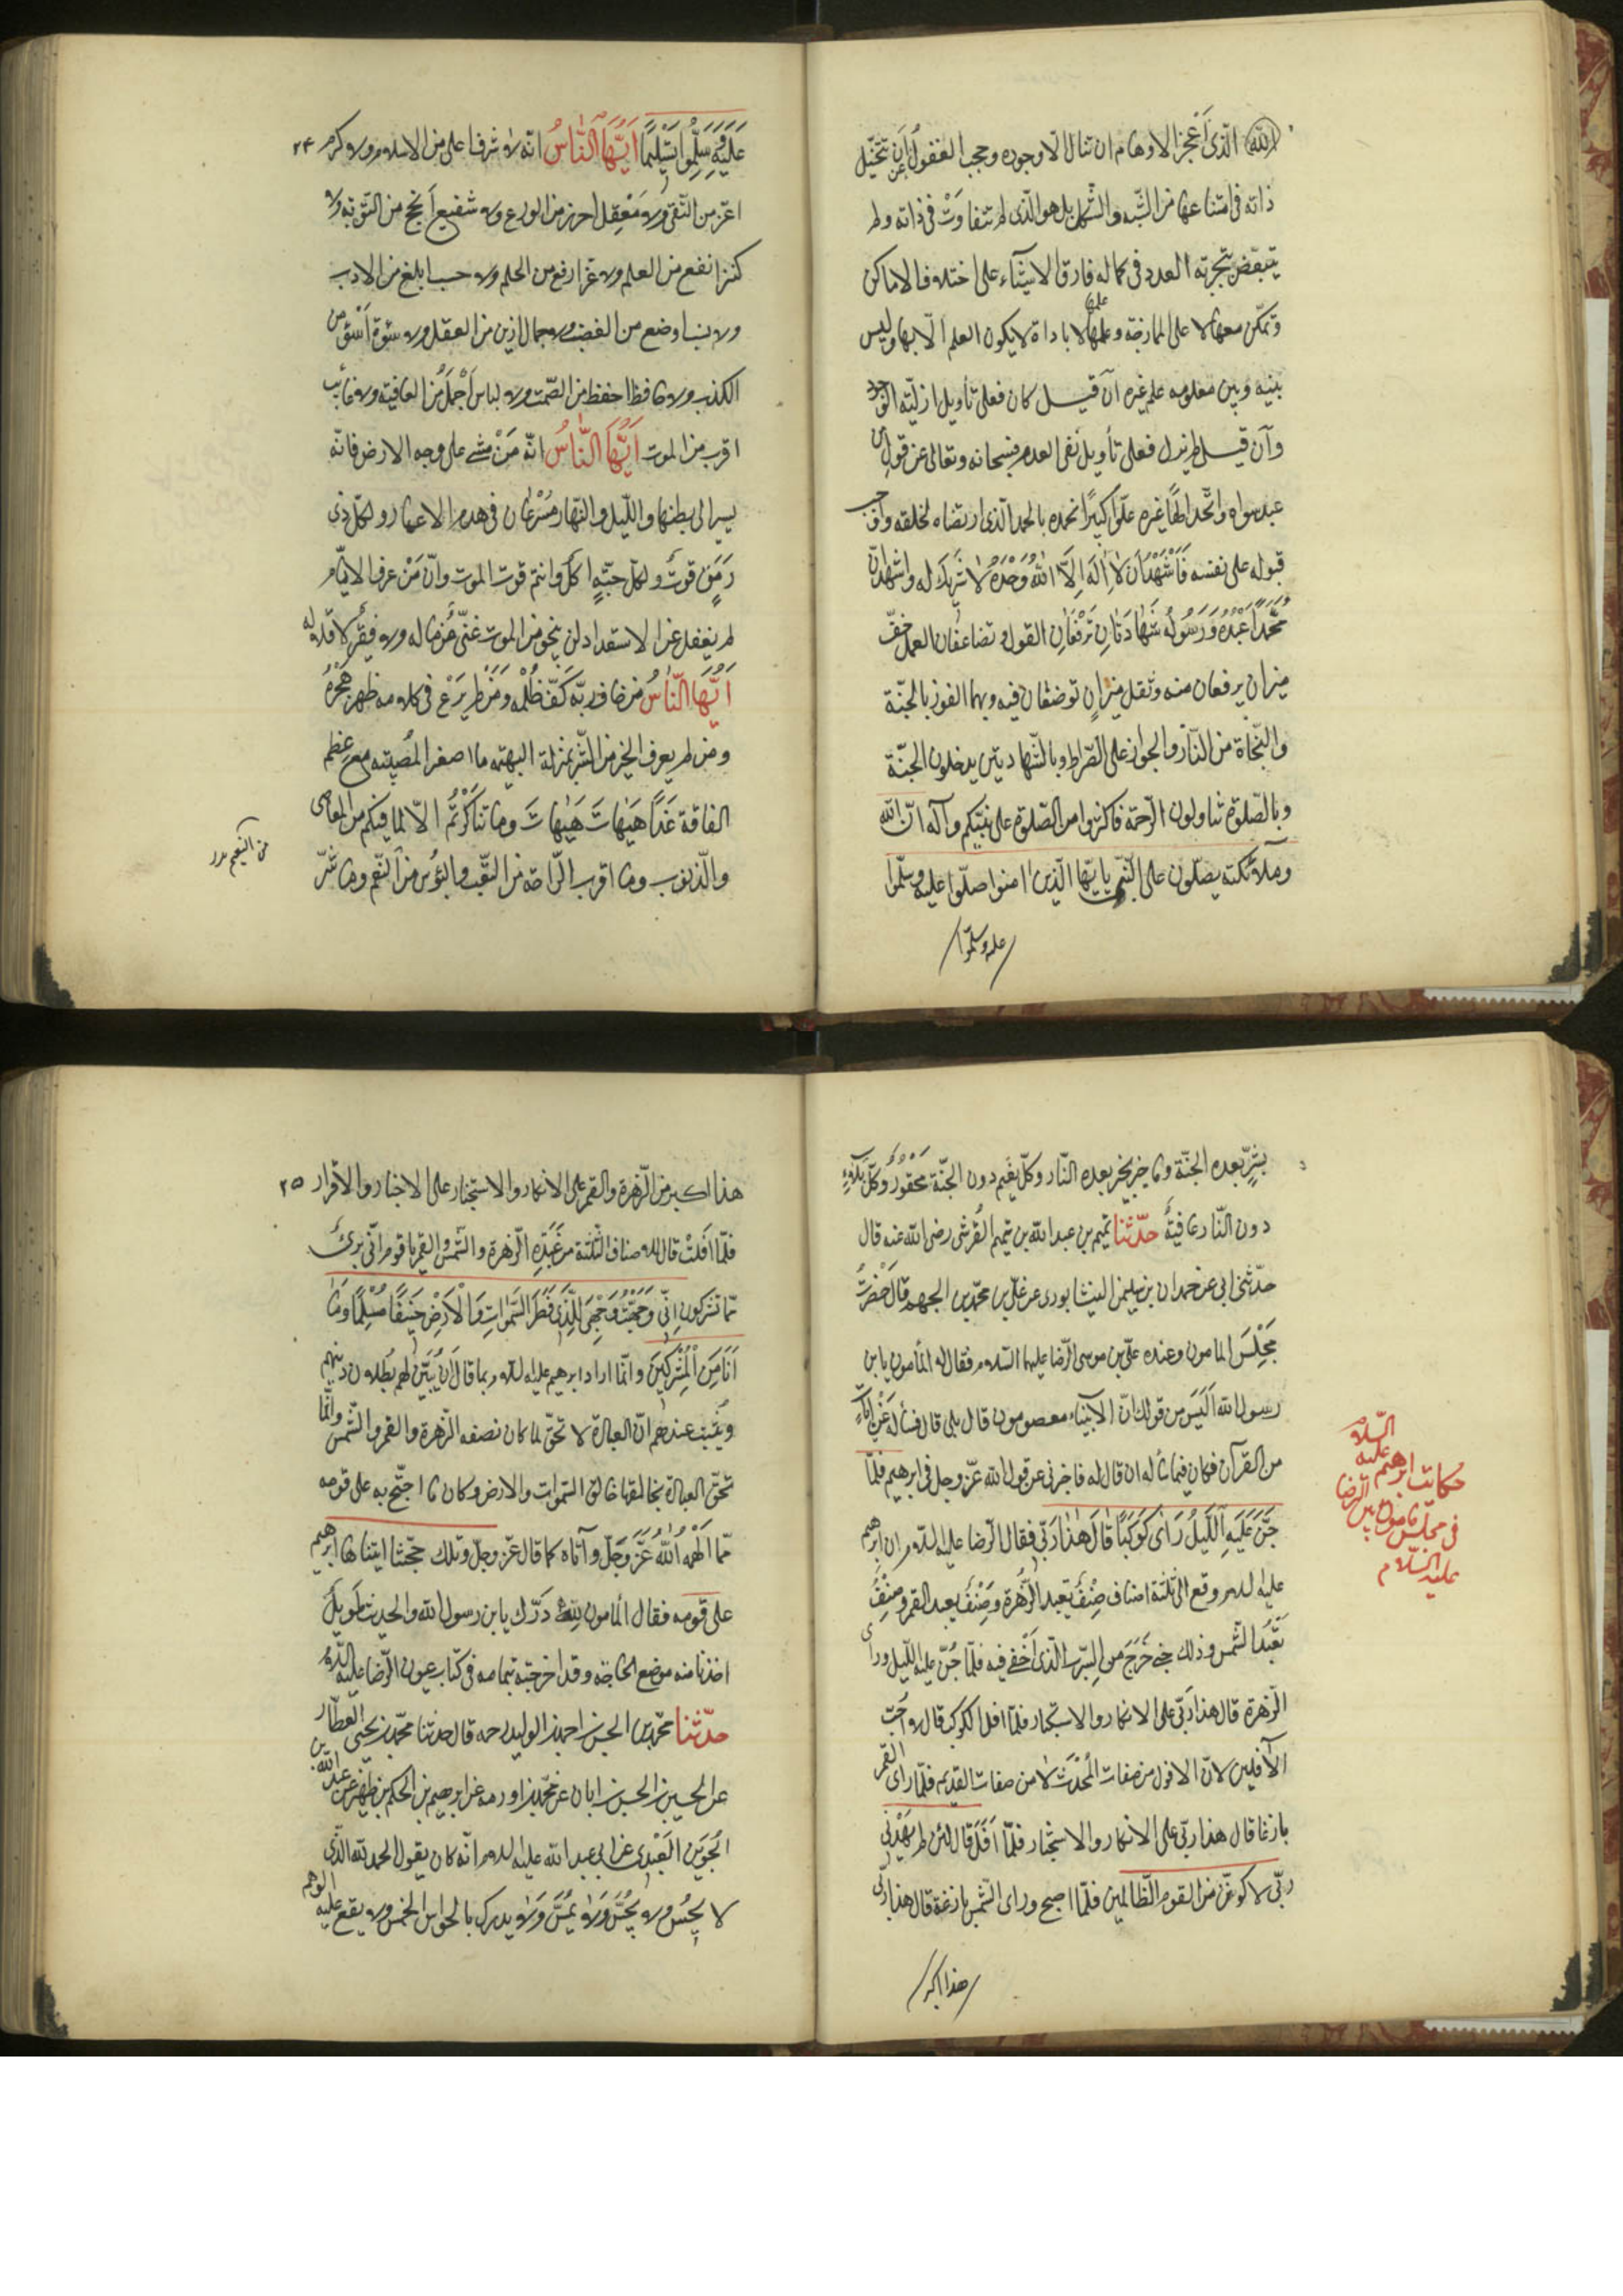 لله الّذى اَعجز الاوهام ان تنال الّا وجوده وحجب العقول عن اَن تتخيّل
ذاته فى امتناعها من الشّبه والشّكل بل هو الّذى لم تتفاوَتْ فى ذاته ولم
يتبعّض بتجزية العدد فى كماله فارق الاشياء لا على اختلاف الاماكن
وتمكّن منها لا على الممازجة وعلمها لا باداة لا يكون العلم الّا بها وليس
بينه وبين معلومه علم غيره ان قيل كان فعلى تأويل ازليّة الوجود
وان قيل لم يزل فعلى تأويل نفى العدم فسبحانه وتعالى عن قول من
عبد سواه واتّخذ الهًا غيره علوّا كبيرًا نحمده بالحمد الّذى ارتضاه لخلقه واوجب
قبوله على نفسه فَاَشْهَدُ اَن لا اِلٰهَ اِلَّا اللهُ وَحْدَهُ لا شَرِيكَ له واشهد انّ
مُحَمَّدًا عَبْدُهُ وَرَسُولُهُ شَهَادَتَانِ تَرْفَعَانِ القول وتضاعفان العمل خفّ
ميزان يرفعان منه وثقل ميزان توضعان فيه وبهما الفوز بالجنّة
والنّجاة من النّار والجواز على الصّراط وبالشّهادتين يدخلون الجنّة
وبالصّلوة تناولون الرّحمة فاكثروا من الصّلوة على نبيّكم وآله انّ الله
وملائكته يصلّون على النّبى يا ايّها الّذين امنوا صلّوا عليه وسلّموا
عليه وسلّموا
عَلَيْهِ وَسَلِّمُوا تَسْلِيمًا اَيُّهَا النَّاسُ انّه لا شرف اعلى من الاسلام ولا كرم ٢٤
اعزّ من التّقى ولا مَعْقِل احرز من الورع ولا شفيع اَنجح من التّوبة ولا
كنز انفع من العلم ولا عزّ ارفع من الحلم ولا حسب ابلغ من الادب
ولا نسب اوضع من الغضب ولا جمال ازين من العقل ولا سوءة اَسْوَءُ من
الكذب ولا حافظ احفظ من الصّمت ولا لباس اَجْمَلُ من العافية ولا غائب
اقرب من الموت اَيُّهَا النَّاسُ انّه مَنْ مشى على وجه الارض فانّه
يسير الى بطنها والليل والنّهار مُسْرِعان فى هدم الاعمار ولكلّ ذى
رَمَقٍ قوتٌ ولكلّ حَبّةٍ اكلٌ وانتم قوت الموت وانّ مَنْ عرف الايّام
لم يغفل عن الاستعداد لن ينجو من الموت غنىٌّ بماله ولا فقير لاقلاله
اَيُّهَا النَّاسُ من خاف ربّه كَفّ ظُلْمه وَمَنْ لم يَرْع فى كلامه ظهر هُجْرُه
ومن لم يعرف الخير من الشّر بمنزلة البهيمة ما اصغر المُصيبة مع عِظم
الفاقة غَدًا هَيْهاتَ هَيْهاتَ وما تناكَرْتُم الّا لما فيكم من المعاصى
والذّنوب وما اقرب الرّاحة من التّعب والبؤس من النّعم وما شرّ
من النعيم
بشرٍّ بعده الجنّة وما خير بخير بعده النّار وكلّ نَعِيم دون الجنّة مَحْقُورٌ وكلّ بَلَاءٍ
دون النّار عافيةٌ حدّثنا تميم بن عبد الله بن تميم القُرشى رضى الله عنه قال
حدّثنى ابى عن حمدان بن سليمن النيشابورى عن علىّ بن محمّد بن الجهم قال حَضَرْتُ
مَجْلِسَ المامون وعنده علىّ بن موسى الرّضا عليهما السّلام فقال له المأمون يابن
رسول الله اَلَيْسَ من قولك انّ الانبياء معصومون قال بلى قال فسأله عَنْ اٰياتٍ
من القرآن فكان فيما سأله ان قال له فاخبرنى عن قول الله عزّ وجل فى ابرهيم فلمّا
جَنَّ عَلَيْهِ اللَّيْلُ رَاٰى كَوْكَبًا قَالَ هٰذَا رَبّى فقال الرّضا عليه السلام ان ابرهيم
عليه السلام وقع الى ثلثة اصناف صِنْفٌ يعبد الزُّهرة وَصِنْفٌ يعبد القمر وصِنْفٌ
يَعْبُدُ الشّمس وذلك حين خَرَجَ من السِّرْب الّذى اُخْفِىَ فيه فلمّا جَنّ عليه اللّيل وراى
الزّهرة قال هذا ربّى على الانكار والاستخبار فلمّا افل الكوكب قال لا اُحِبّ
الآفلين لانّ الافول من صفات المُحْدَث لا من صفات القديم فلمّا راى القمر
بازغا قال هذا ربّى على الانكار والاستخبار فلمّا اَفَلَ قال لئن لم يَهْدِنى
ربّى لاكوننّ من القوم الظّالمين فلمّا اصبح وراى الشّمس بازغة قال هذا ربّى
هذا اكبر
حكايت ابرهيم عليه السّلام
فى مجلس مامون پيش الرضا
عليه السّلام
هذا اكبر من الزّهرة والقمر على الانكار والاستخبار لا على الاخبار والاقرار ٢٥
فلمّا اَفَلَتْ قال للاصناف الثّلثة من عَبَدَةِ الزّهرة والشّمس والقمر يا قوم انّى برىء
ممّا تشركون اِنِّى وَجَّهْتُ وَجْهِىَ لِلَّذِى فَطَرَ السَّمٰوَاتِ وَالْاَرْضَ حَنِيفًا مُسْلِمًا وَمَا
اَنَا مِنَ الْمُشْرِكِينَ وانّما اراد ابرهيم عليه السلام بما قال اَن يُبَيّن لهم بُطلان دينهم
ويُثبت عندهم انّ العبادة لا تحقّ لما كان بصفة الزّهرة والقمر والشّمس وانّما
تحقّ العبادة لخالقها خالق السّموات والارض وكان ما احتجّ به على قومه
ممّا اَلْهَمَهُ اللهُ عَزَّ وَجَلّ وآتاه كما قال عزّ وجلّ وتلك حجّتنا آتيناها ابرهيم
على قومه فقال المأمون لِلّٰه دَرّك يابن رسول الله والحديث طَويلٌ
اخذنا منه موضع الحاجة وقد اخرجته بتمامه فى كتاب عيون الرّضا عليه السلام
حدّثنا محمّد بن الحسن بن احمد بن الوليد رحمه قال حدّثنا محمّد بن يحيى العطّار
عن الحسين بن الحسن بن ابان عن محمّد بن اورمة عن ابرهيم بن الحكم بن ظهير عن عبد الله بن
الجُوَين العَبْدى عن ابى عبد الله عليه السلام انّه كان يقول الحمد لله الّذى
لا يُحِسّ ولا يُجَسّ وَلا يُمَسّ وَلا يدرك بالحواس الخمس ولا يقع عليه الوهم